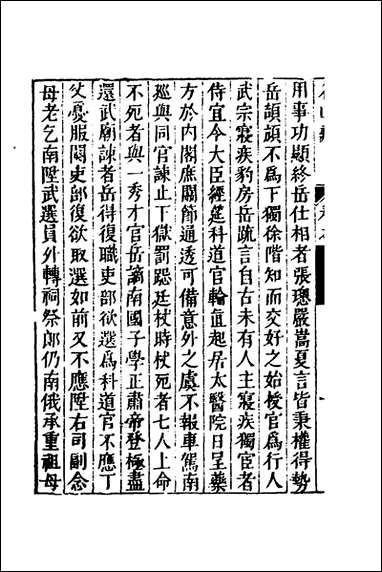 用事功顯終岳仕相者張璁嚴嵩夏言皆秉權得勢
岳頡頏不為下獨徐階知而交好之始授官為行人
武宗寢疾豹房岳䟽言自古未有人主寢疾獨宦者
侍宜今大臣經筵科道官輪直起居太醫院日呈藥
方於內閣庶關節通透可備意外之虞不報車駕南
廵與同官諫止下獄罰跪廷杖時杖死者七人上命
不死者與一秀才官岳謫南國子學正肅帝登極盡
還武廟諫者岳得復職吏部欲選為科道官不應丁
父憂服闋吏部復欲取選如前又不應陞右司副念
母老乞南陞武選員外轉祠祭郎仍南俄承重祖母